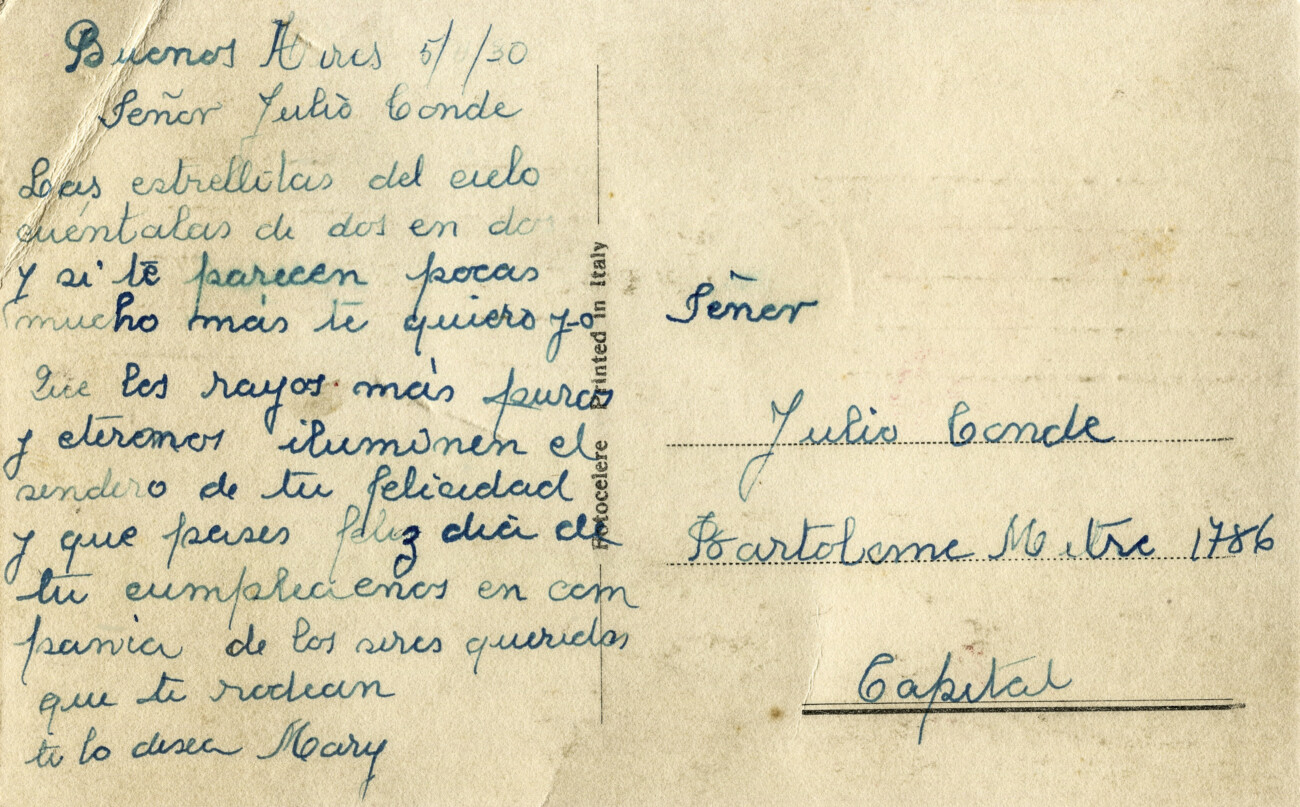 Buenos Aires 5/1/30
Señor Julio Conde
Las estrellitas del cielo
cuéntalas de dos en dos
y si te parecen pocas
mucho más te quiero yo
Que los rayos más puros
y eternos iluminen el
sendero de tu felicidad
y que pases feliz dia de
tu cumpleaños en com
pania de los seres queridos
que te rodean
te lo desea Mary
Fotocelere Printed in Italy
Señor
Julio Conde
Bartolome Mitre 1786
Capital